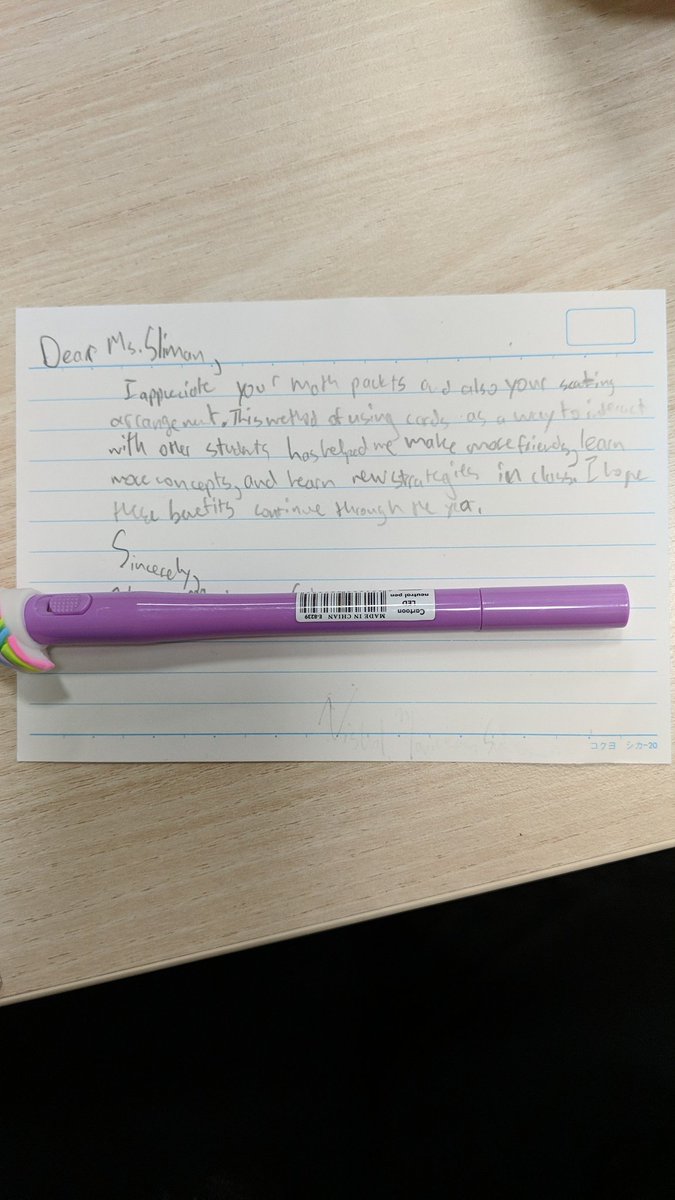 Dear Ms. Sliman,
I appreciate your math packts and also your seating
arrangement. This method of using cards as a way to interact
with other students has helped me make more friends, learn
more concepts, and learn new strategies in class. I hope
these benefits continue through the year.
Sincerely,
Cartoon
LED
neutral pen
MADE IN CHIAN E-8239
コクヨ シカ-20